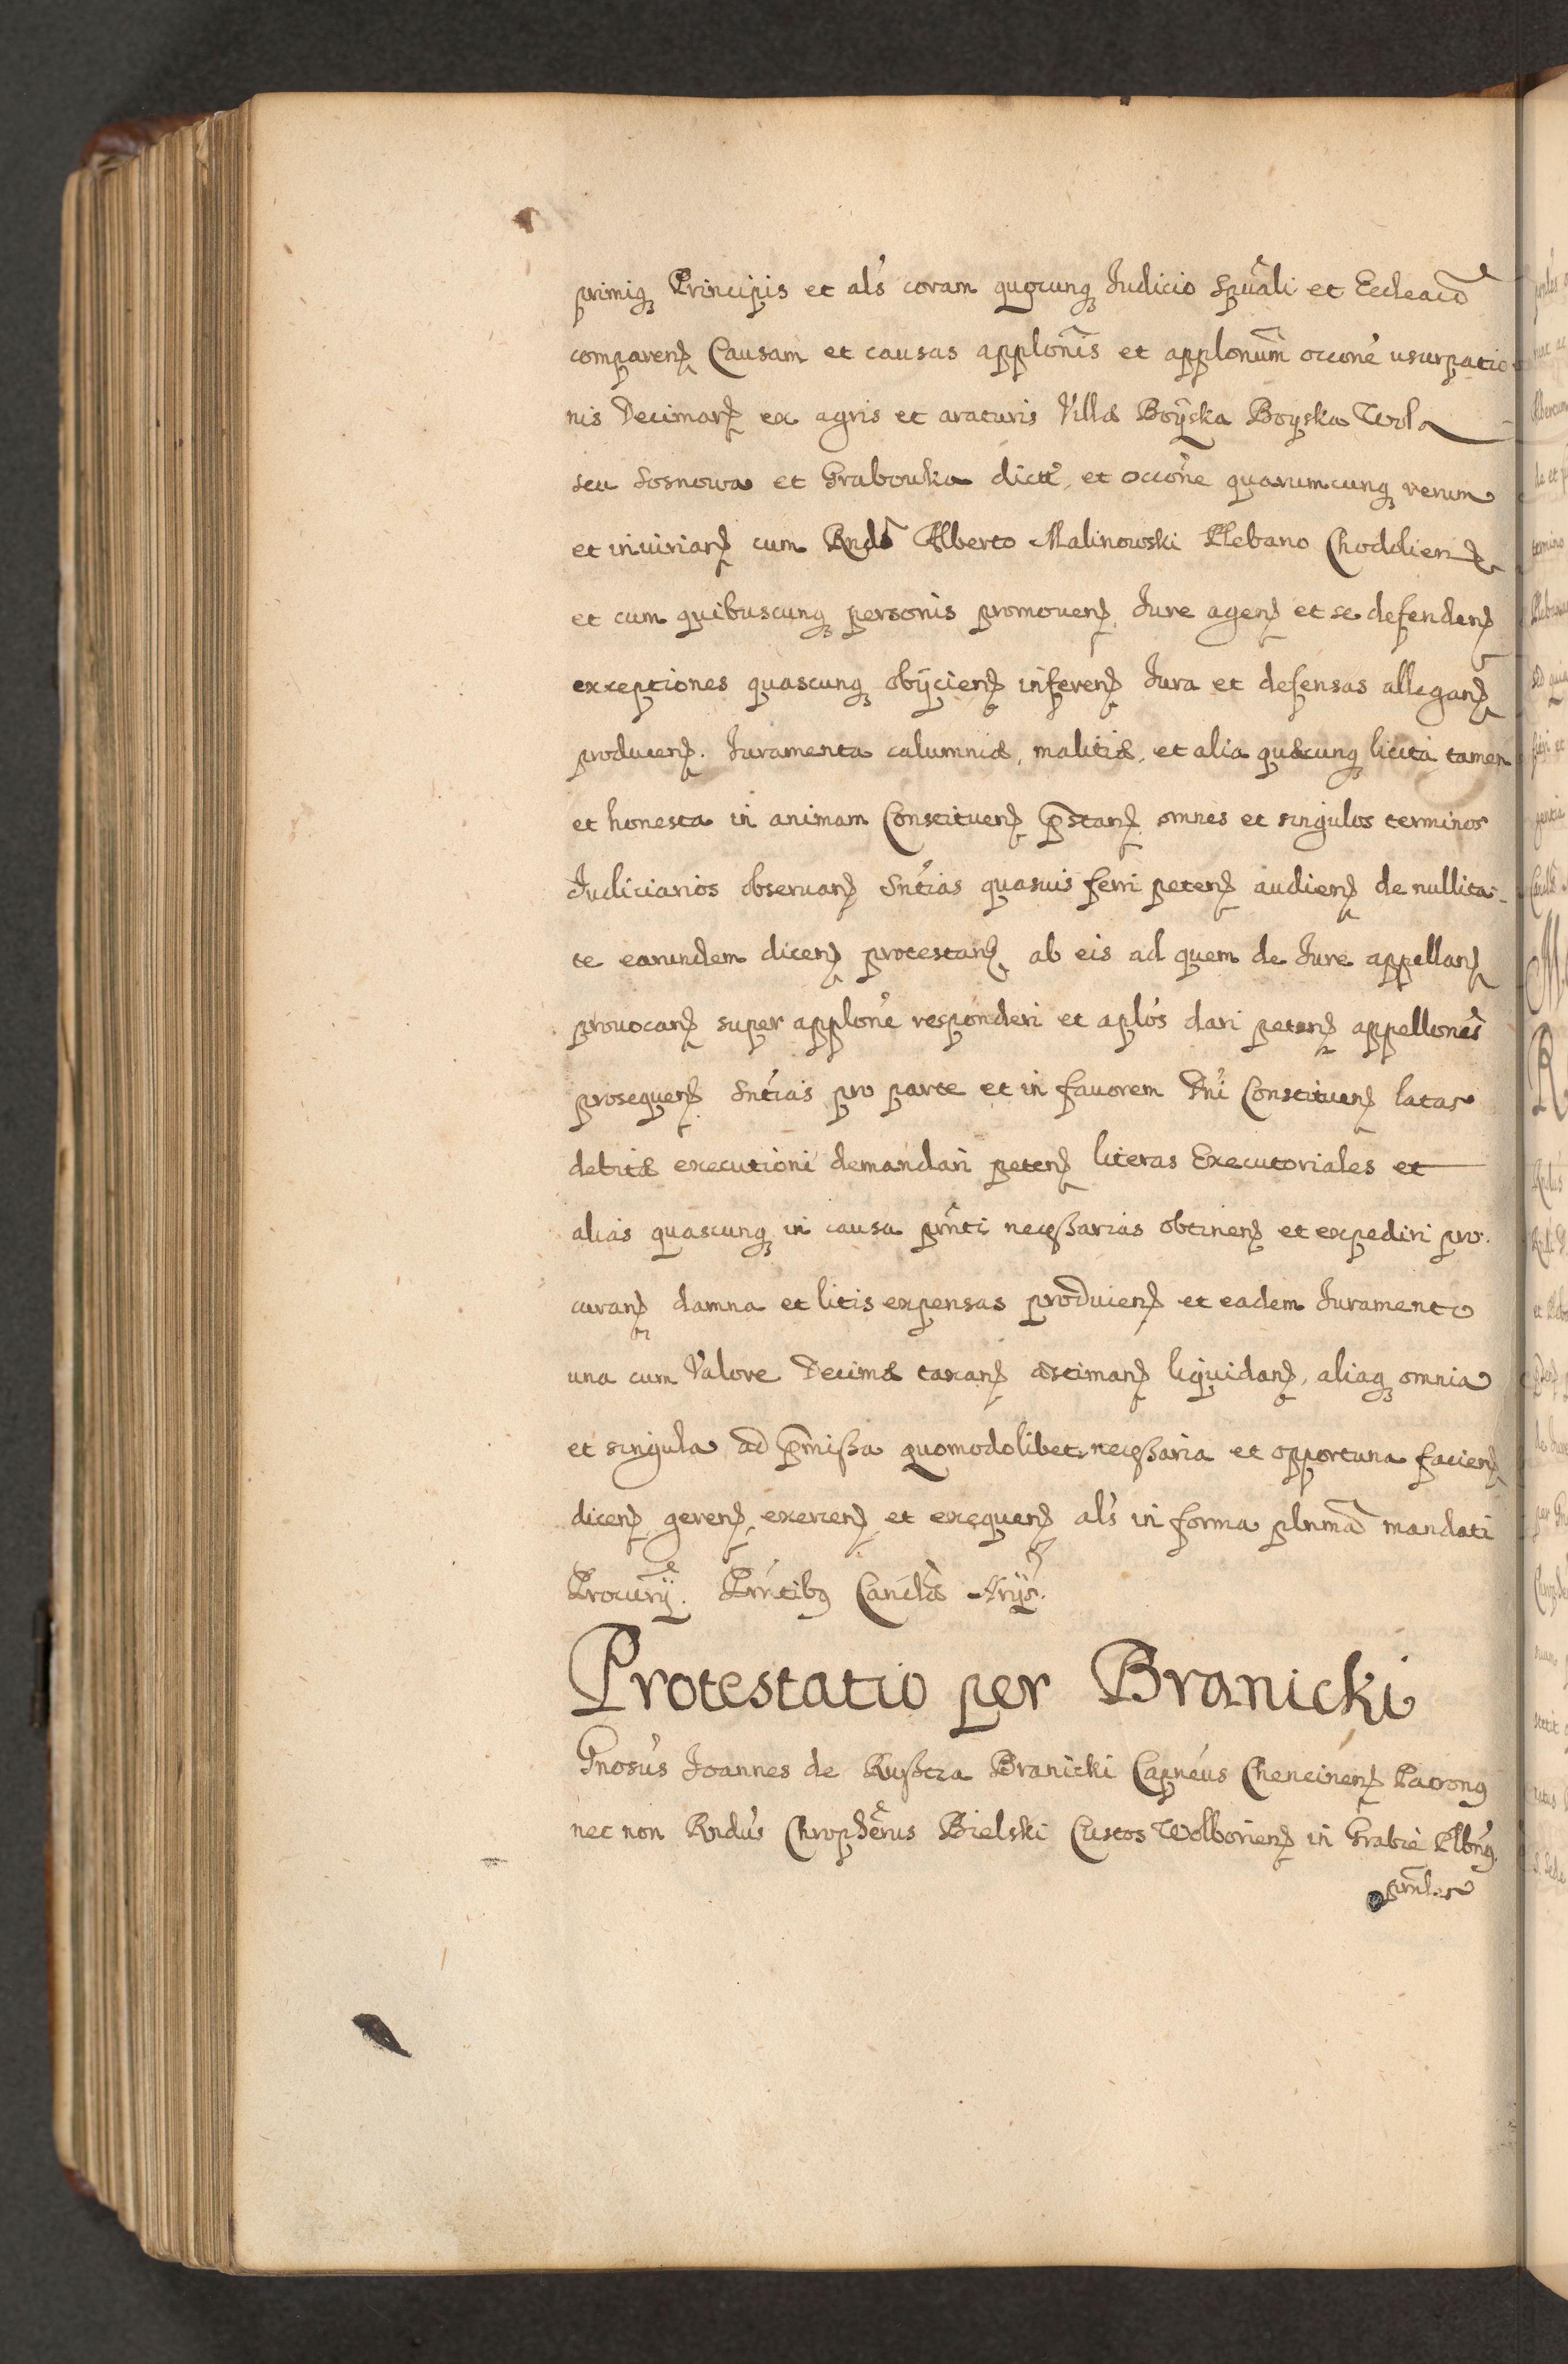 primiq₃ Principis et als coram quocunq₃ Judicio Spuali et Eccleaco
comparenꝭ Causam et causas applonis et applonum occone usurpatio
nis Decimarꝭ ex agris et araturis Villæ Boÿska Boyska Wola
seu Sosnowa et Grabouka dictæ, et occone quarumcunq₃ rerum
et iniuriarꝭ cum Rndo Alberto Malinowski Plebano Choddlienꝭ
et cum quibuscunq₃ personis promouenꝭ Jure agenꝭ et se defendenꝭ
exceptiones quascunq₃ obÿcienꝭ inferenꝭ Jura et defensas alleganꝭ
producenꝭ. Juramenta calumniæ, malitiæ, et alia quæcunq₃ licita tamen
et honesta in animam Constituenꝭ pstanꝭ omnes et singulos terminos
Judiciarios obseruanꝭ Sntias quasuis ferri petenꝭ audienꝭ de nullita-
te earundem dicenꝭ protestanꝭ ab eis ad quem de Jure appellanꝭ
prouocanꝭ super applone responderi et aplos dari petenꝭ appellones
prosequenꝭ Sntias pro parte et in fauorem Dni Constituenꝭ latas
debitæ executioni demandari petenꝭ literas Executoriales et
alias quascunq₃ in causa prnti necessarias obtinenꝭ et expediri pro-
curanꝭ damna et litis expensas producenꝭ et eadem Juramento
una cum Valore Decimæ taxanꝭ æstimanꝭ liquidanꝭ, aliaq₃ omnia
et singula ad pmissa quomodolibet necessaria et opportuna facienꝭ
dicenꝭ gerenꝭ exercenꝭ et exequenꝭ als in forma plnma mandati
Procurÿ. Prntibꝰ Canclæ Nrijs.
Protestatio per Branicki
Gnosus Joannes de Ruszcza Branicki Capneus Chencinenꝭ Patronꝰ
nec non Rndus Chropherus Bielski Custos Wolborienꝭ in Grabie Plbnꝰ
prnles